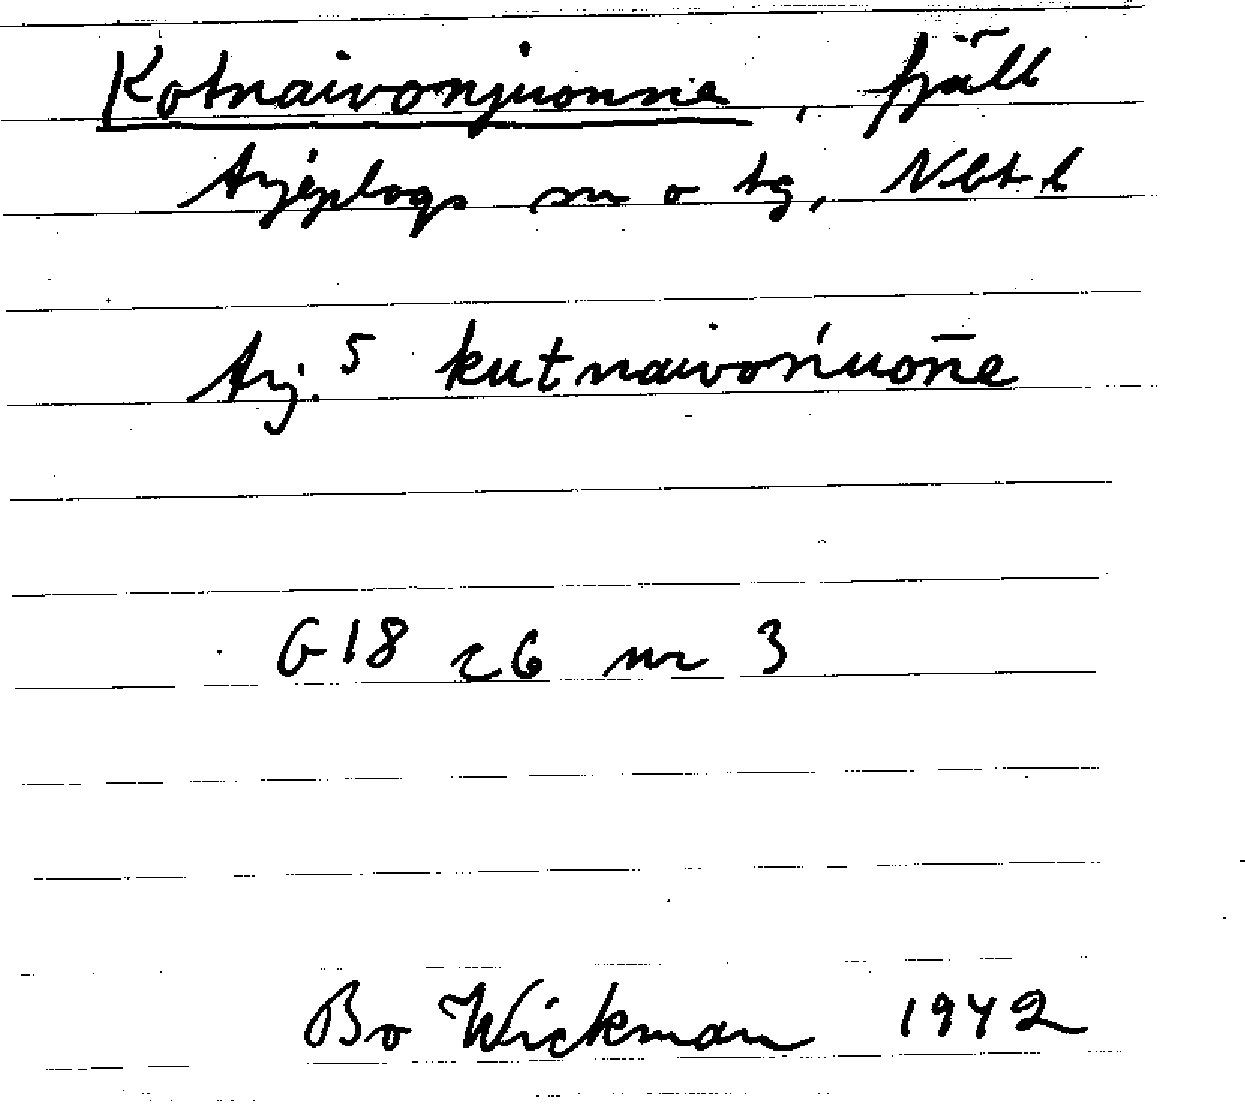 Kotnaivonjuonne, fjäll
Arjeplogs sn o tg, Nbt l
Arj. 5 kutnaivońuōn̄e
G18 c6 nr 3
Bo Wickman 1942